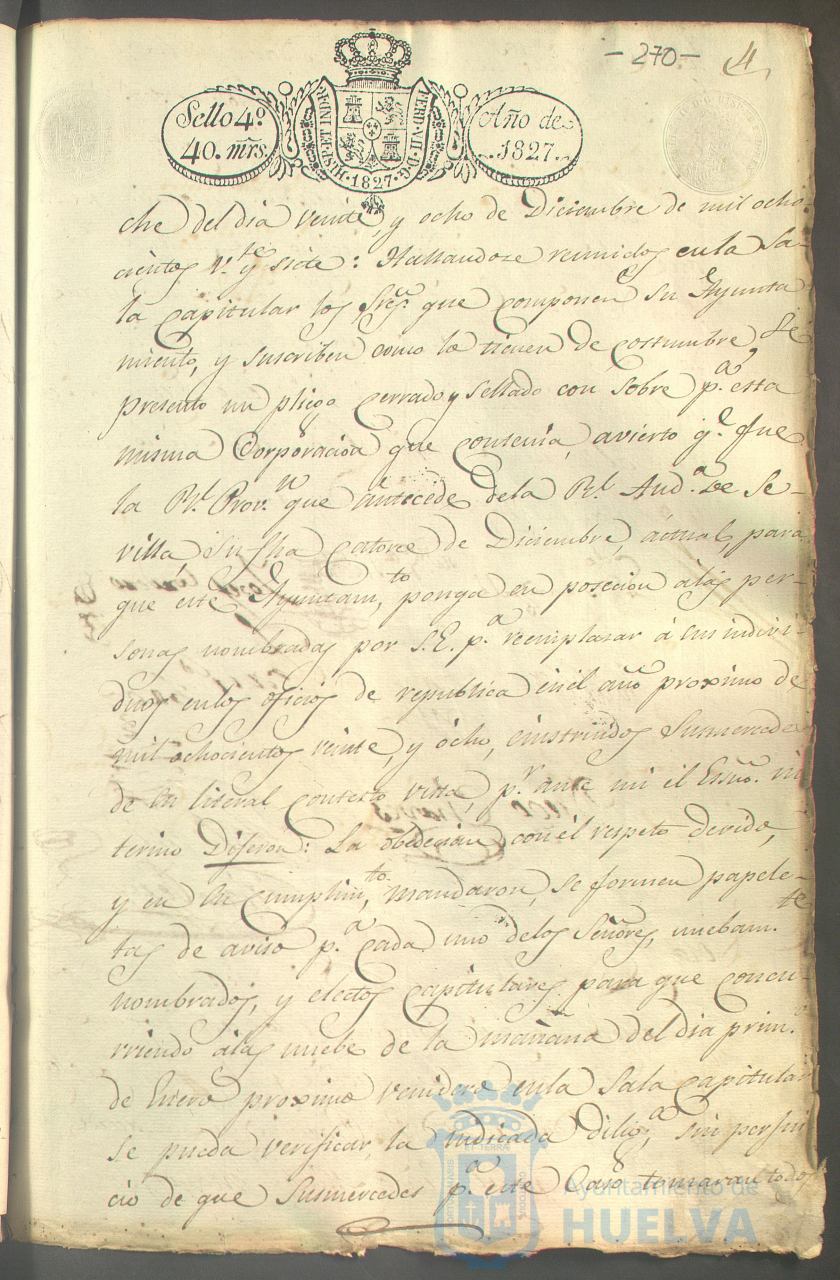 - 270 -
4
Sello 4º
40. mrs.
HISP. ET IND. R.
FERD. VII. D. G.
1827
Año de
1827.
che del dia veinte, y ocho de Diciembre de mil ocho
cientos v.te y siete: Hallandoze reunidos en la Sa-
la capitular los Sres. que componen su Ayunta
miento, y suscriben como lo tienen de costumbre se
presento un pliego cerrado y sellado con sobre p.a esta
misma Corporacion que contenia, avierto q.e fue
la Rl. Prov.n que antecede de la Rl. Aud.a de Se-
villa su fha catorce de Diciembre, actual, para
que este Ayuntam.to ponga en posecion á las per-
sonas nombradas por S.E. p.a reemplazar á sus indivi-
duos en los oficios de republica en el año proximo de
mil ochocientos veinte, y ocho, é instruidos Susmercedes
de su literal contesto vista, p.r ante mi el Essno. in
terino Digeron: La obdecian con el respeto devido,
y en su cumplim.to mandaron, se formen papele-
tas de aviso p.a cada uno de los Señores, nuebam.te
nombrados, y electos capitulares para que concu-
rriendo álas nuebe de la mañana del dia prim.o
de Enero proximo venidero en la Sala capitular
se pueda verificar, la indicada dilig.a sin perjui
cio de que Susmercedes p.a este caso tomaran todo
Ayuntamiento de
HUELVA